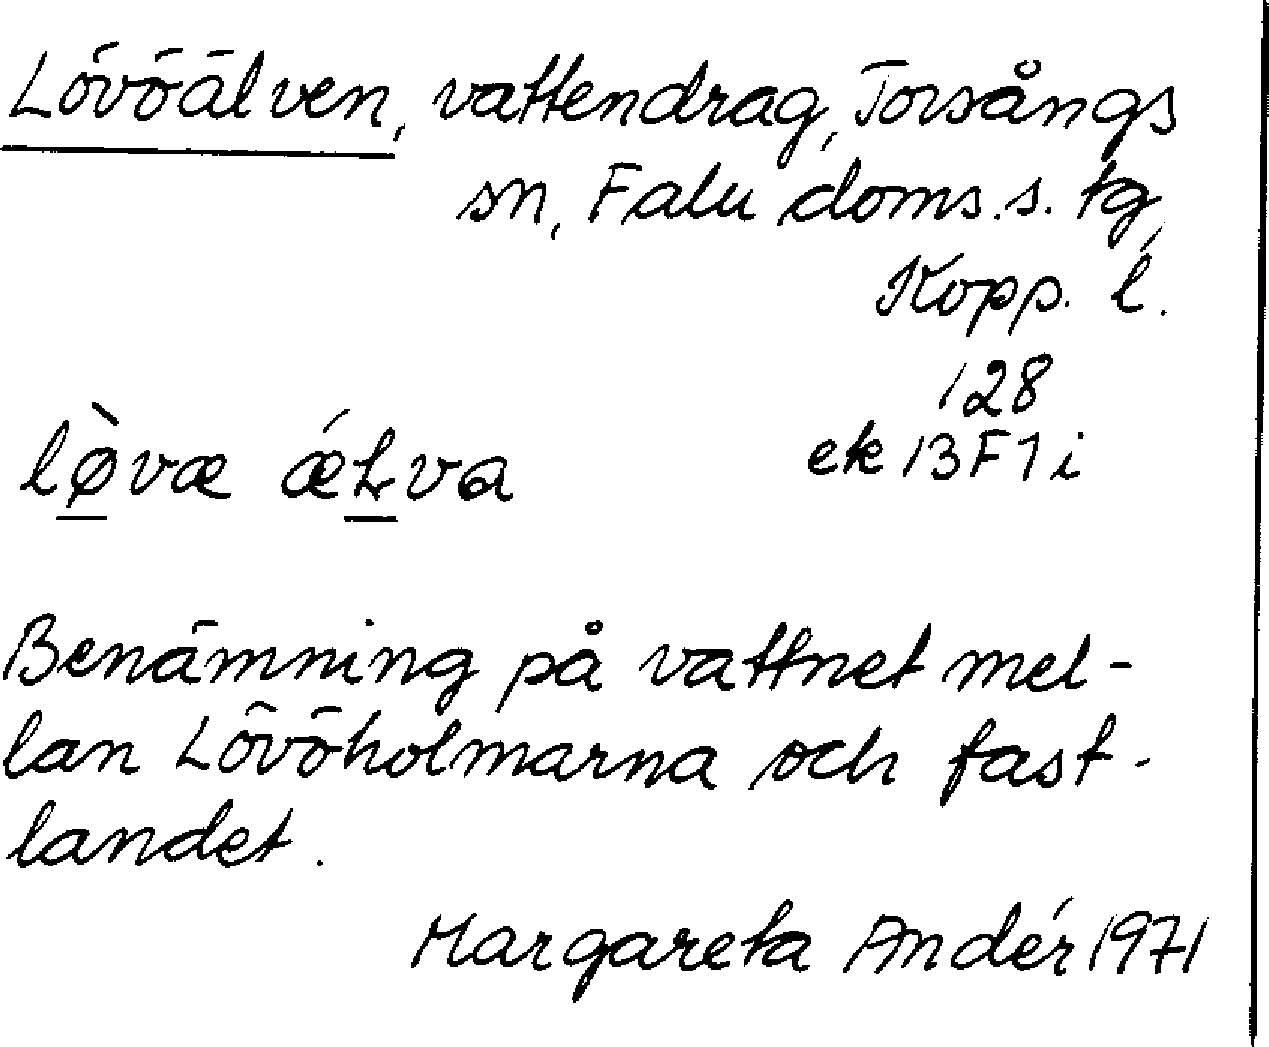 Lövöälven, vattendrag, Torsångs
sn, Falu doms.s. tg,
Kopp. l.
128
ek 13F1i
lø̀væ ǽLva
Benämning på vattnet mel-
lan Lövöholmarna och fast-
landet.
Margareta Andér 1971